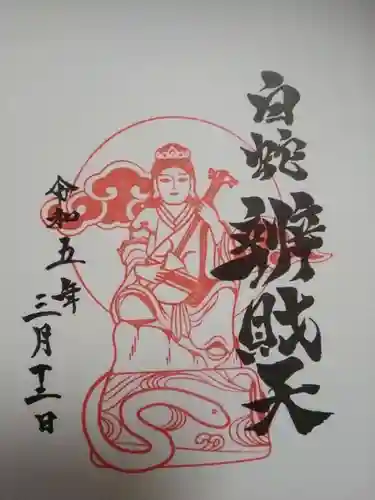 白蛇
辨財天
令和五年
三月十二日